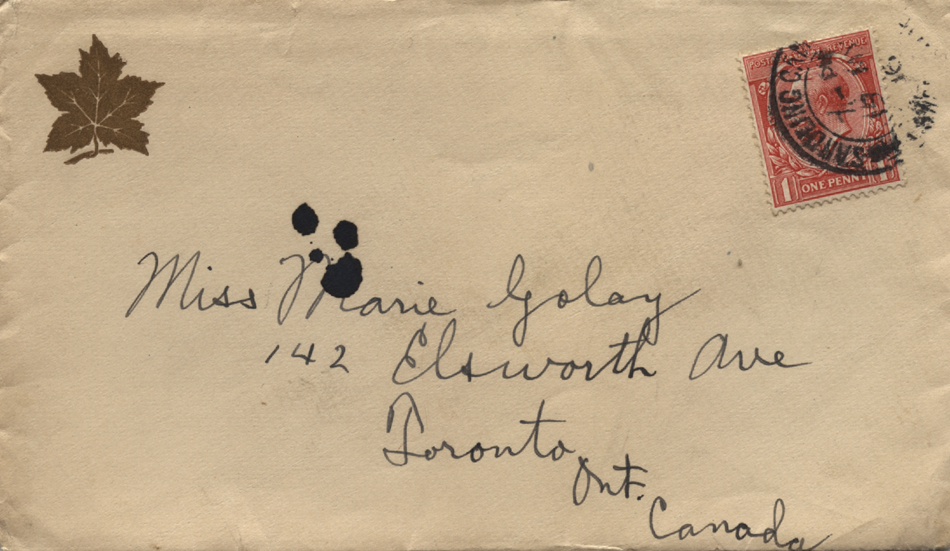 POSTAGE REVENUE
1 ONE PENNY 1
Miss Marie Golay
142 Elsworth Ave
Toronto
Ont.
Canada